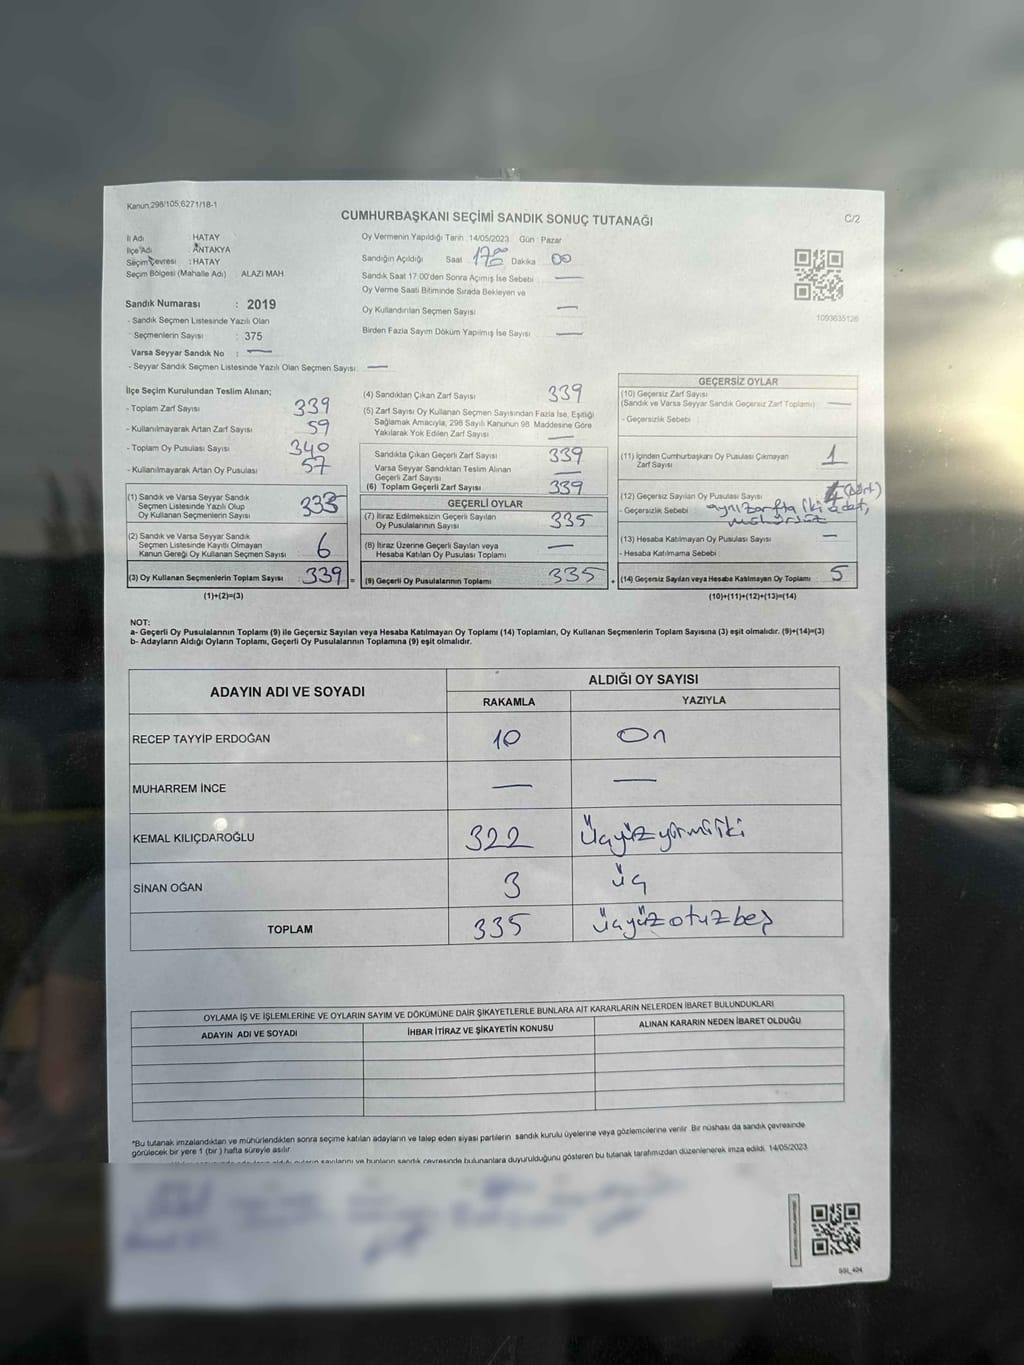 Kanun,298/105,6271/18-1
CUMHURBAŞKANI SEÇİMİ SANDIK SONUÇ TUTANAĞI
C/2
İl Adı HATAY
İlçe Adı ANTAKYA
Seçim Çevresi : HATAY
Seçim Bölgesi (Mahalle Adı) ALAZI MAH
Sandık Numarası : 2019
- Sandık Seçmen Listesinde Yazılı Olan
Seçmenlerin Sayısı : 375
Varsa Seyyar Sandık No : —
- Seyyar Sandık Seçmen Listesinde Yazılı Olan Seçmen Sayısı: —
Oy Vermenin Yapıldığı Tarih 14/05/2023 Gün : Pazar
Sandığın Açıldığı Saat Dakika 00
Sandık Saat 17:00'den Sonra Açımış İse Sebebi —
Oy Verme Saati Bitiminde Sırada Bekleyen ve
Oy Kullandırılan Seçmen Sayısı —
Birden Fazla Sayım Döküm Yapılmış İse Sayısı —
1093635126
İlçe Seçim Kurulundan Teslim Alınan;
- Toplam Zarf Sayısı 339
- Kullanılmayarak Artan Zarf Sayısı 59
- Toplam Oy Pusulası Sayısı 340
- Kullanılmayarak Artan Oy Pusulası 57
(1) Sandık ve Varsa Seyyar Sandık
Seçmen Listesinde Yazılı Olup
Oy Kullanan Seçmenlerin Sayısı 333
(2) Sandık ve Varsa Seyyar Sandık
Seçmen Listesinde Kayıtlı Olmayan
Kanun Gereği Oy Kullanan Seçmen Sayısı 6
(3) Oy Kullanan Seçmenlerin Toplam Sayısı 339 =
(1)+(2)=(3)
(4) Sandıktan Çıkan Zarf Sayısı 339
(5) Zarf Sayısı Oy Kullanan Seçmen Sayısından Fazla İse, Eşitliği
Sağlamak Amacıyla, 298 Sayılı Kanunun 98. Maddesine Göre
Yakılarak Yok Edilen Zarf Sayısı —
Sandıkta Çıkan Geçerli Zarf Sayısı 339
Varsa Seyyar Sandıktan Teslim Alınan
Geçerli Zarf Sayısı —
(6) Toplam Geçerli Zarf Sayısı 339
GEÇERLİ OYLAR
(7) İtiraz Edilmeksizin Geçerli Sayılan
Oy Pusulalarının Sayısı 335
(8) İtiraz Üzerine Geçerli Sayılan veya
Hesaba Katılan Oy Pusulası Toplamı —
(9) Geçerli Oy Pusulalarının Toplamı 335 +
GEÇERSİZ OYLAR
(10) Geçersiz Zarf Sayısı
(Sandık ve Varsa Seyyar Sandık Geçersiz Zarf Toplamı) —
- Geçersizlik Sebebi
(11) İçinden Cumhurbaşkanı Oy Pusulası Çıkmayan
Zarf Sayısı 1
(12) Geçersiz Sayılan Oy Pusulası Sayısı 4 (dört)
- Geçersizlik Sebebi aynı zarfta iki adet,
mühürsüz
(13) Hesaba Katılmayan Oy Pusulası Sayısı —
- Hesaba Katılmama Sebebi
(14) Geçersiz Sayılan veya Hesaba Katılmayan Oy Toplamı 5
(10)+(11)+(12)+(13)=(14)
NOT:
a- Geçerli Oy Pusulalarının Toplamı (9) ile Geçersiz Sayılan veya Hesaba Katılmayan Oy Toplamı (14) Toplamları, Oy Kullanan Seçmenlerin Toplam Sayısına (3) eşit olmalıdır. (9)+(14)=(3)
b- Adayların Aldığı Oyların Toplamı, Geçerli Oy Pusulalarının Toplamına (9) eşit olmalıdır.
ADAYIN ADI VE SOYADI
ALDIĞI OY SAYISI
RAKAMLA YAZIYLA
RECEP TAYYİP ERDOĞAN 10 On
MUHARREM İNCE — —
KEMAL KILIÇDAROĞLU 322 Üçyüzyirmiiki
SİNAN OĞAN 3 üç
TOPLAM 335 üçyüzotuzbeş
OYLAMA İŞ VE İŞLEMLERİNE VE OYLARIN SAYIM VE DÖKÜMÜNE DAİR ŞİKAYETLERLE BUNLARA AİT KARARLARIN NELERDEN İBARET BULUNDUKLARI
ADAYIN ADI VE SOYADI İHBAR İTİRAZ VE ŞİKAYETİN KONUSU ALINAN KARARIN NEDEN İBARET OLDUĞU
*Bu tutanak imzalandıktan ve mühürlendikten sonra seçime katılan adayların ve talep eden siyasi partilerin sandık kurulu üyelerine veya gözlemcilerine verilir. Bir nüshası da sandık çevresinde
görülecek bir yere 1 (bir ) hafta süreyle asılır.
sayılarını ve bunların sandık çevresinde bulunanlara duyurulduğunu gösteren bu tutanak tarafımızdan düzenlenerek imza edildi. 14/05/2023